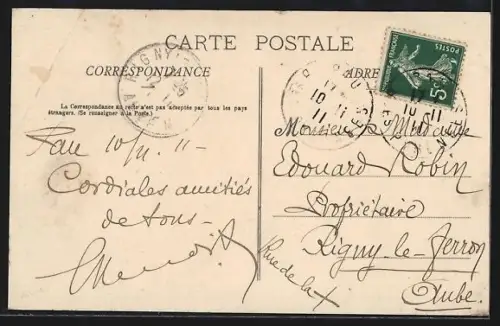 CARTE POSTALE
CORRESPONDANCE
La Correspondance au recto n'est pas acceptée par tous les pays
étrangers. (Se renseigner à la Poste.)
Pau 10/11. 11 –
Cordiales amitiés
de tous –
ADRE
Monsieur & Madame
Edouard Robin
Propriétaire
Rigny-le-Ferron
Aube.
Rue de la +
POSTES
5
RIGNY
10 11
11
10 11
11